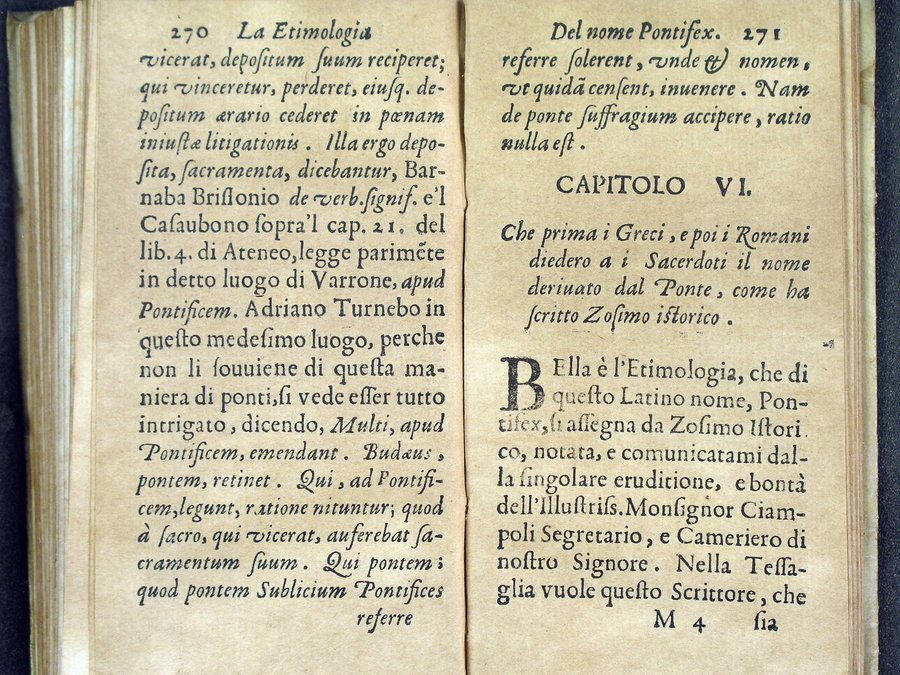 270 La Etimologia
vicerat, depositum ſuum reciperet;
qui vinceretur, perderet, eiuſq. de-
positum ærario cederet in pœnam
iniuſtæ litigationis. Illa ergo depo-
ſita, ſacramenta, dicebantur, Bar-
naba Briſſonio de verb. ſignif. e'l
Caſaubono ſopra'l cap. 21. del
lib. 4. di Ateneo, legge parimẽte
in detto luogo di Varrone, apud
Pontificem. Adriano Turnebo in
queſto medeſimo luogo, perche
non li ſouuiene di queſta ma-
niera di ponti, ſi vede eſſer tutto
intrigato, dicendo, Multi, apud
Pontificem, emendant. Budæus,
pontem, retinet. Qui, ad Pontifi-
cem, legunt, ratione nituntur; quod
à ſacro, qui vicerat, auferebat ſa-
cramentum ſuum. Qui pontem;
quod pontem Sublicium Pontifices
referre
Del nome Pontifex. 271
referre ſolerent, vnde & nomen,
vt quidã cenſent, inuenere. Nam
de ponte ſuffragium accipere, ratio
nulla eſt.
CAPITOLO VI.
Che prima i Greci, e poi i Romani
diedero a i Sacerdoti il nome
deriuato dal Ponte, come ha
ſcritto Zoſimo iſtorico.
BElla è l'Etimologia, che di
queſto Latino nome, Pon-
tifex, ſi aſſegna da Zoſimo Iſtori.
co, notata, e comunicatami dal-
la ſingolare eruditione, e bontà
dell'Illuſtriſs. Monſignor Ciam-
poli Segretario, e Cameriero di
noſtro Signore. Nella Teſſa-
glia vuole queſto Scrittore, che
M 4 ſia